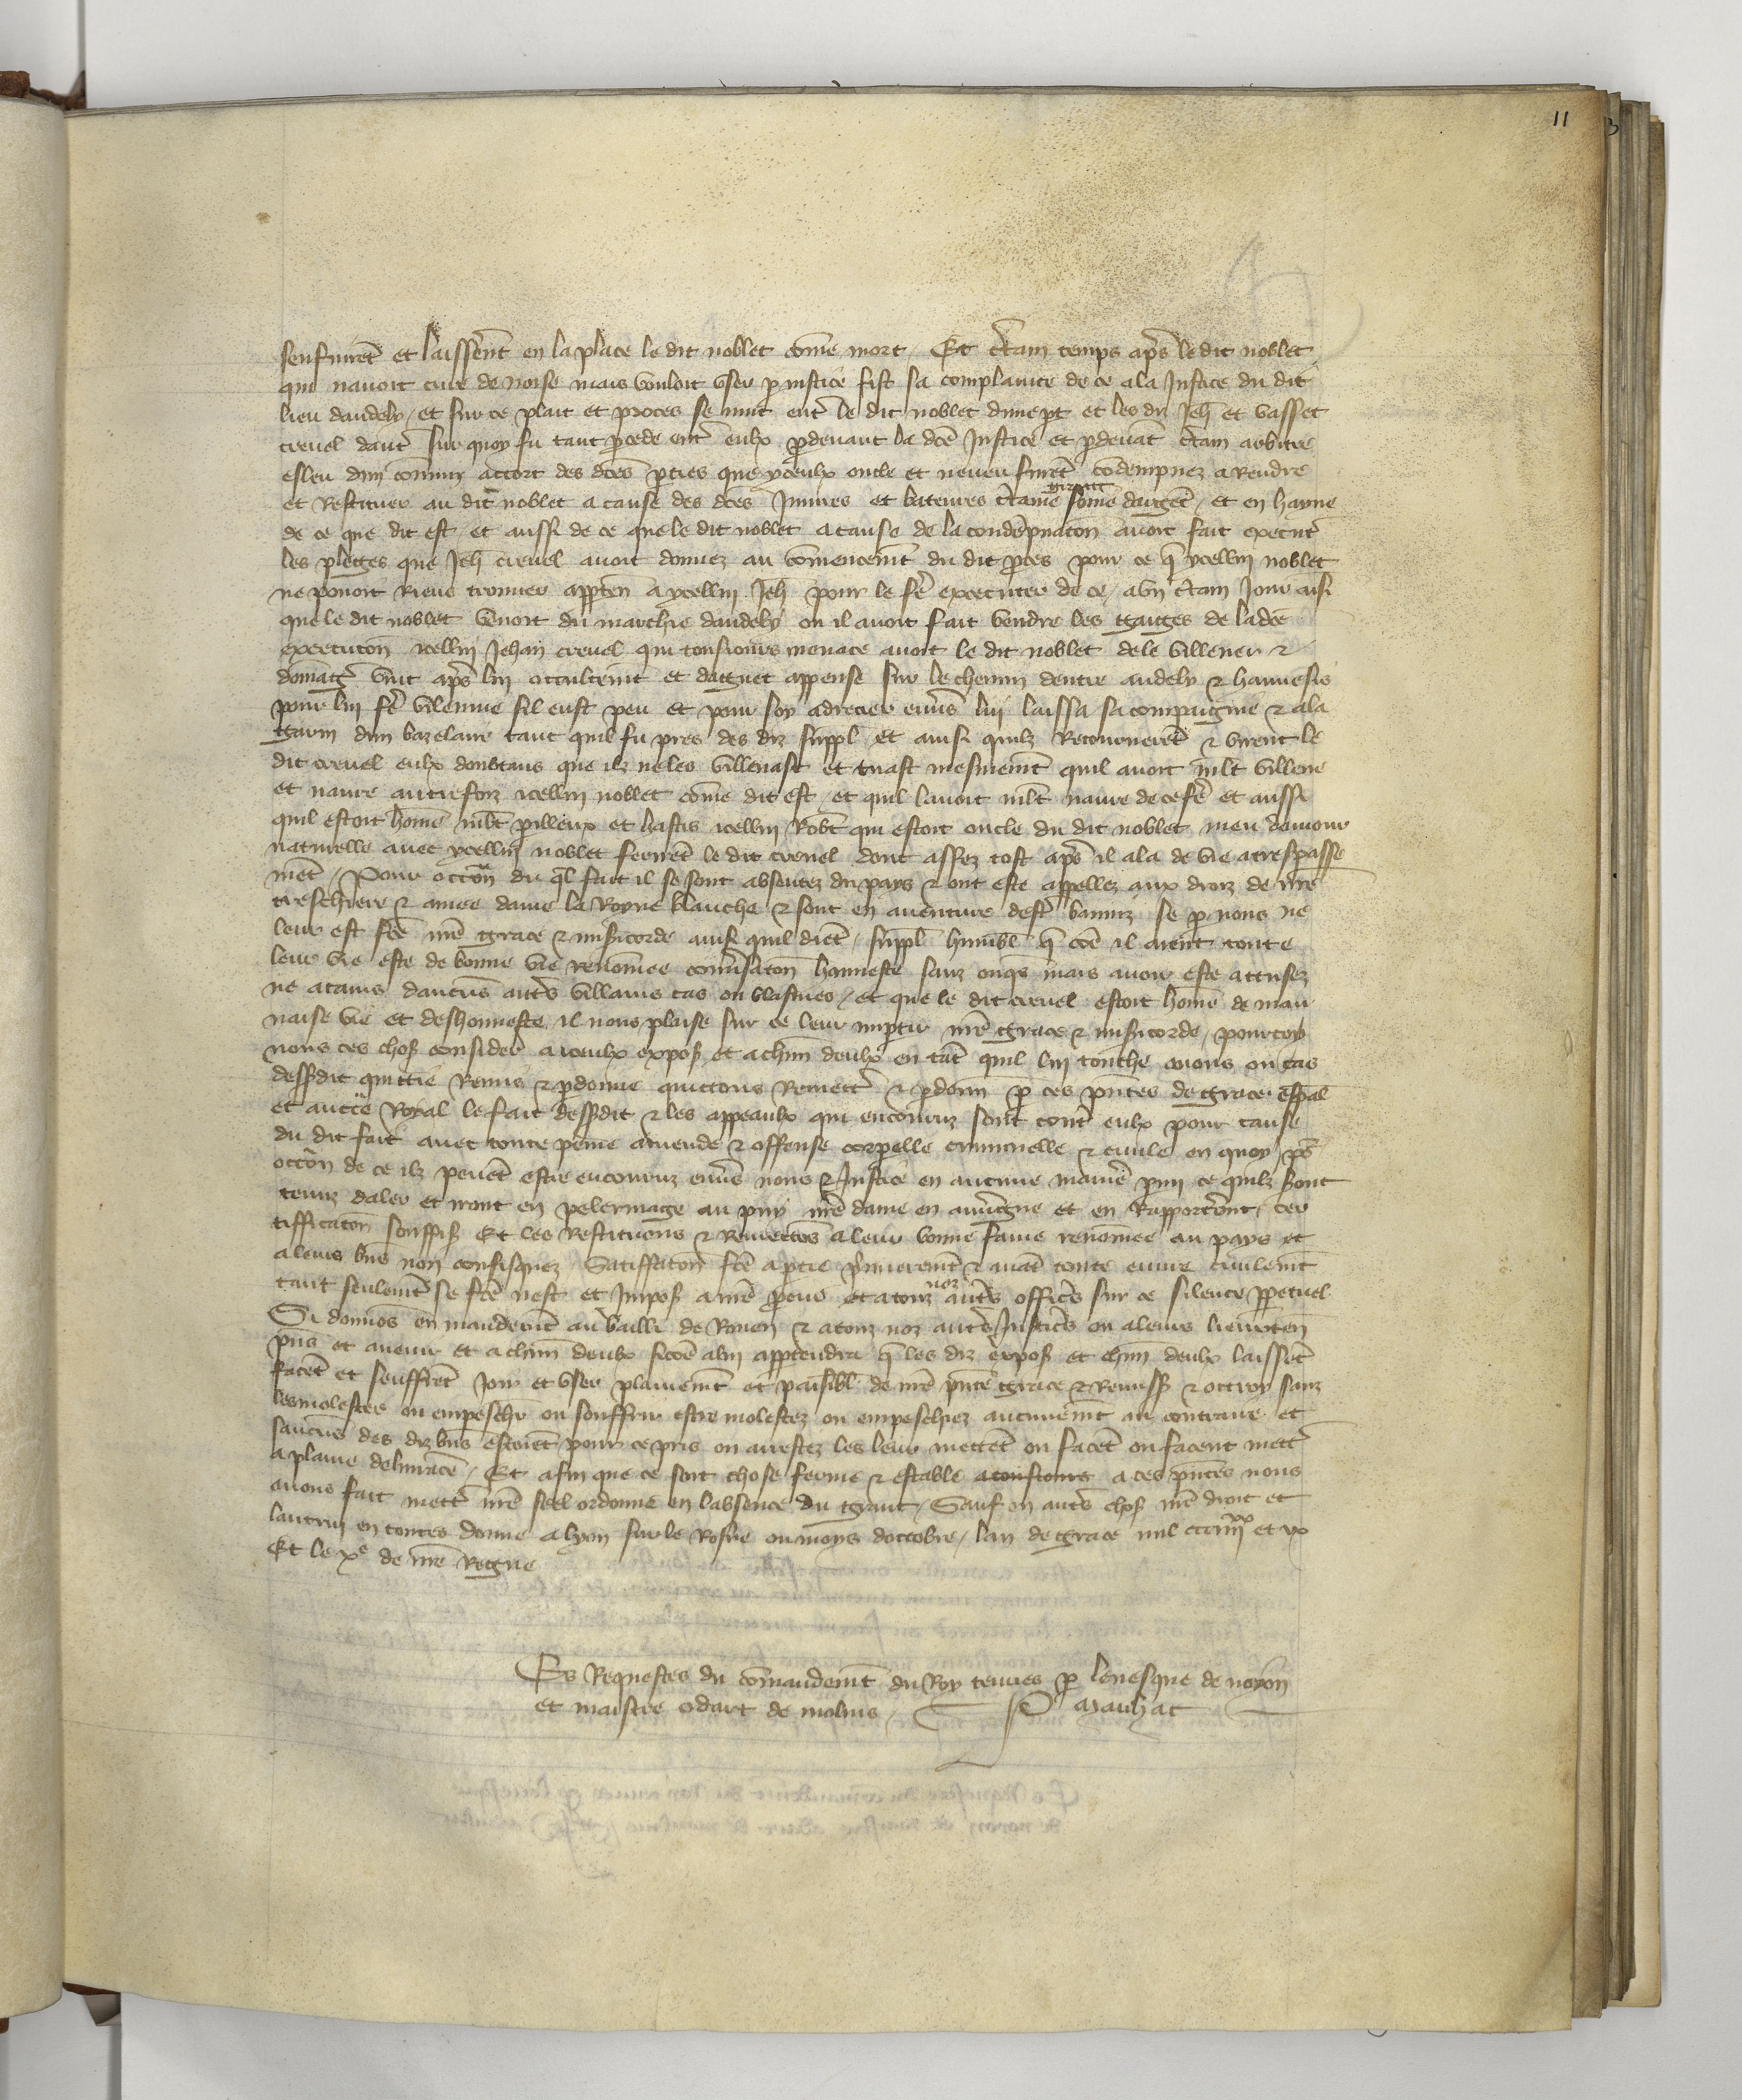 11
senfuirent et laisserent en la place le dit noblet come mort / Et certain temps apres le dit noblet
qui nauoit cure de noise mais vouloit vser par iustice fist sa complainte de ce a la Justice du dit
lieu dandely / et sur ce plait et proces se mut entre le dit noblet dune part et les diz Jeh et vasset
creuel dautre sur quoy fu tant procede entre eulx pardeuant la dce Justice et pardeuant certain arbitre
esleu dun comun accort des dces parties que yceulx oncle et neueu furent condempnez a rendre
et restituer au dit noblet a cause des dces Iniures et bateures certaine somme dargent / et en hayne
de ce que dit est et aussi de ce que le dit noblet a cause de la condempnacon auoit fait executer
les pleges que Jeh creuel auoit donnez au comencement du dit proces pour ce que ycellui noblet
ne pouoit riens trouuer apparten a ycellui Jeh pour le fere executer de ce / a un certain Jour aisi
que le dit noblet venoit du marchie dandely ou il auoit fait vendre les gaiges de la dce
execucon icellui Jehan creuel qui tousiours menace auoit le dit noblet de le villener et
domager vint apres lui occultement et daguet appense sur le chemin dentre andely et hanuesis
pour lui fere vilennie sil eust peu et pour soy adrecier enuers lui laissa sa compaignie et ala
garni dun bazelaire tant quil fu pres des diz suppl et ainsi quilz retournerent et virent le
dit creuel eulx doubtans que ilz ne les villenast et tuast mesmement quil auoit mlt villene
et naure autrefoiz icellui noblet come dit est / et quil lauoit mlt naure de ce fere et aussi
quil estoit home mlt perilleux et hastis icellui Robt qui estoit oncle du dit noblet meu damour
naturelle auec ycellui noblet ferirent le dit creuel dont assez tost apres il ala de vie a trespasse
ment / Pour occon du ql fait il se sont absentez du pays et ont este appellez aux droiz de nre
treschiere et amee dame la Royne blanche et sont en auenture destre banniz se par nous ne
leur est fce nre grace et misericorde ainsi quil dient / suppl humbl q coe il aient toute
leur vie este de bonne vie renomee conuersacon honneste sanz onqs mais auoir este accusez
ne atains daucuns autres villains cas ou blasmes / et que le dit creuel estoit home de mau
uaise vie et deshonneste il nous plaise sur ce leur impartir nre grace et misericorde / pourcoy
nous ces choses consider a iceulx exposans et a chun deulx en tant quil lui touche auons ou cas
dessusdit quictie remis et pardonne quictons remett et pardonn par ces pntes de grace espal
et aucte Royal le fait dessusdit et les appeaulx qui encouruz sont contre eulx pour cause
du dit fait auec toute peine amende et offense corporelle criminelle et ciuile en quoy pour
occon de ce ilz peuent estre encouruz enuers nous et Justice en aucune maniere parmi ce quilz sont
tenuz daler et iront en pelerinage au puy nre dame en auuergne et en rapporteront cer
tifficacon souffis Et les restituons et remectons a leur bonne fame renomee au pays et
a leurs bns non confisquez Satiffacon fce a partie premierement et auant toute euure ciuilemt
tant seulemt se fce nest et Imposs a nre procur et a touz noz autres officers sur ce silence perpetuel
Si donnos en mandement au bailli de Rouen et a touz noz autres Justicers ou a leurs lieuxten
pns et auenir et a chun deulx sicoe a lui appartendra q les diz exposs et chun deulx laissent
facent et seuffrent Joir et vser plainement et paisibl de nre pnte grace et remiss et octroy sanz
les molester ou empeschr ou souffrir estre molestez ou empeschiez aucunement au contraire et
saucuns des diz bns estoient pour ce pris ou arrestez les leur mettent ou facent ou facent mett
a plaine deliurance / Et afin que ce soit chose ferme et estable a tousiours a ces pntes nous
auons fait mettre nre seel ordonne en labsence du grant / Sauf en autres choses nre droit et
lautrui en toutes donne a lyon sur le rosne ou moys doctobre / lan de grace mil ccciiijxx et ix
Et le xe de nre Regne
Es Requestes du comandement du Roy tenues par leuesque de noyon
et maistre odart de molins / P Mauhac